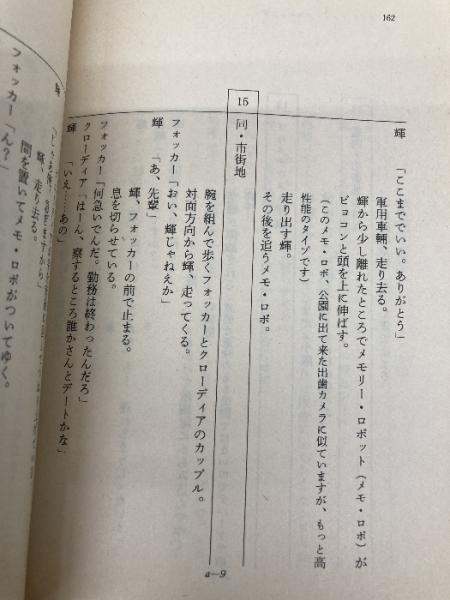 162
輝　「ここまででいい。ありがとう」
軍用車輛、走り去る。
輝から少し離れたところでメモリー・ロボット（メモ・ロボ）が
ピョコンと頭を上に伸ばす。
（このメモ・ロボ、公園に出て来た出歯カメラに似ていますが、もっと高
性能のタイプです）
走り出す輝。
その後を追うメモ・ロボ。
15　同・市街地
腕を組んで歩くフォッカーとクローディアのカップル。
対面方向から輝、走ってくる。
フォッカー「おい、輝じゃねえか」
輝　「あ、先輩」
輝、フォッカーの前で止まる。
息を切らせている。
フォッカー「何急いでんだ。勤務は終わったんだろ」
クローディア「はーん、察するところ誰かさんとデートかな」
輝　「いえ……あの」
輝
輝、走り去る。
間を置いてメモ・ロボがついてゆく。
フォッカー「ん？」
a—9